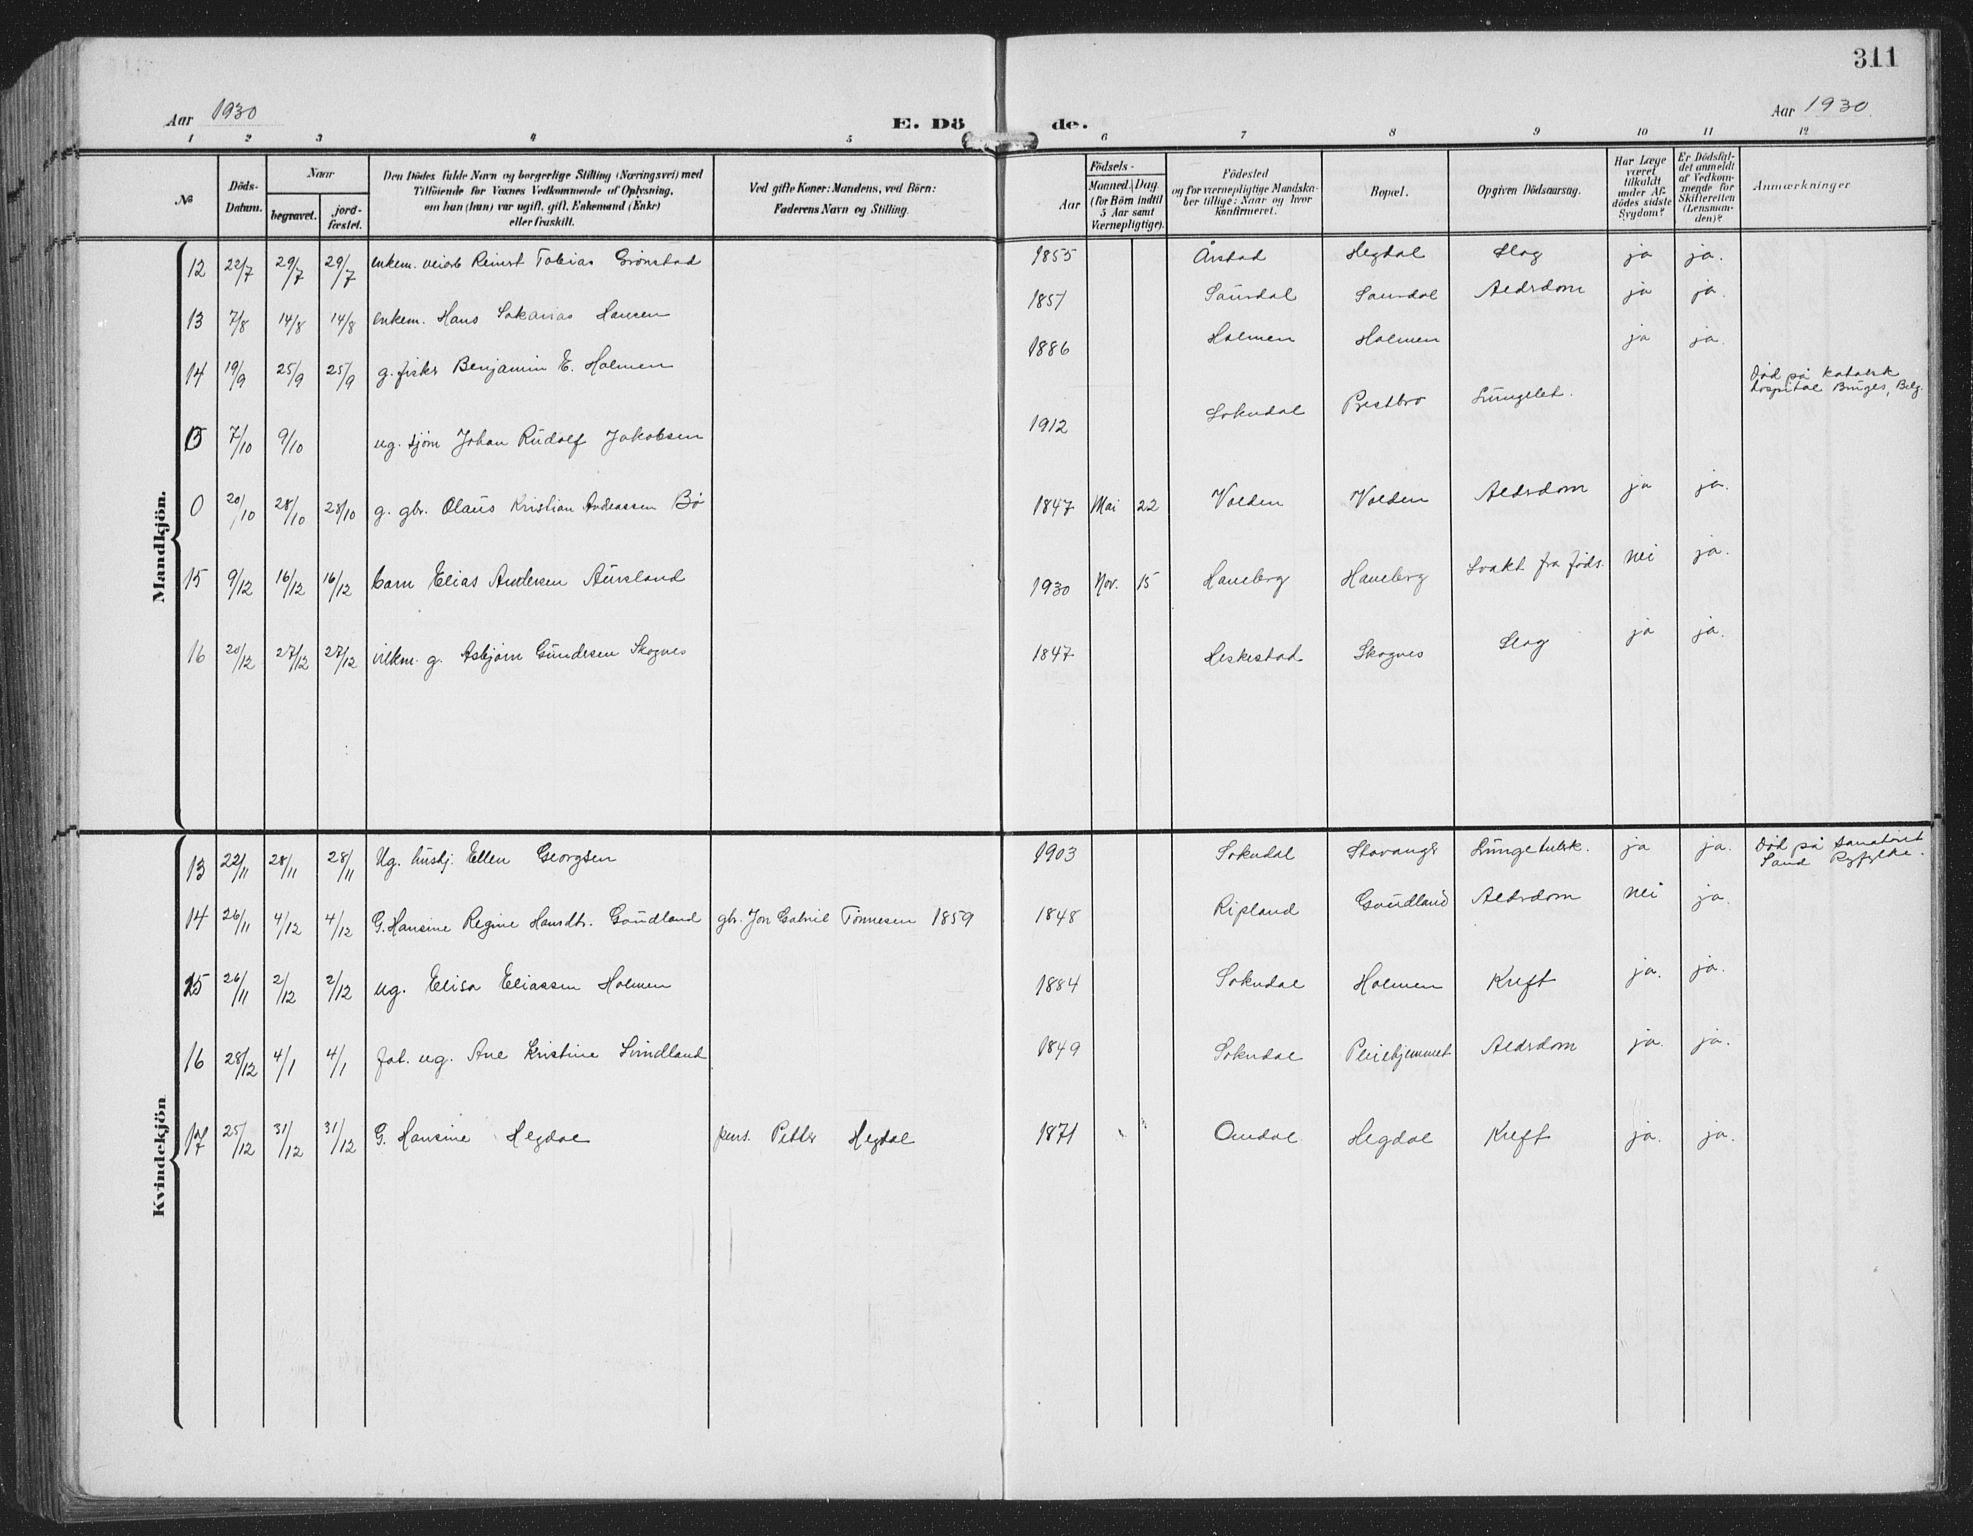 311
Aar 1930
E. Dö
de.
Aar 1930
1 2 3 4 5 6 7 8 9 10 11 12
№
Döds-
Datum.
Naar
begravet.
jord-
fæstet.
Den Dödes fulde Navn og borgerlige Stilling (Næringsvei) med
Tilföiende for Voxnes Vedkommende af Oplysning,
om han (hun) var ugift, gift, Enkemand (Enke)
eller fraskilt.
Ved gifte Koner: Mandens, ved Börn:
Faderens Navn og Stilling.
Födsels-
Aar
Maaned. Dag.
(for Börn indtil
5 Aar samt
Værnepligtige).
Födested
og for værnepligtige Mandska-
ber tillige: Naar og hvor
konfirmeret.
Bopæl.
Opgiven Dödsaarsag.
Har Læge
været
tilkaldt
under Af-
dödes sidste
Sygdom?
Er Dödsfal-
det anmeldt
af Vedkom-
mende for
Skifteretten
(Lensman-
den)?
Anmærkninger
Mandkjön.
12 22/7 29/7 29/7 enkem. veiarb Reinert Tobias Grønstad 1855 Årstad Hegdal Slag ja ja.
13 7/8 14/8 14/8 enkem. Hans Sakarias Hansen 1857 Saurdal Saurdal Aldrdom ja ja.
14 19/9 25/9 25/9 g. fisker Benjamin E. Holmen 1886 Holmen Holmen ja ja.
Død på katolsk
hospital Bruges, Belg.
7/10 9/10 ug. sjøm Johan Rudolf Jakobsen 1912 Sokndal Prestbro
0 20/10 28/10 28/10 g. gbr. Olaus Kristian Andreassen Bø 1847 Mai 22 Valden Valden Aldrdom ja ja.
15 9/12 16/12 16/12 barn Elias Andersen Aursland 1930 Nov. 15 Haneberg Haneberg Svakt fra føds. nei ja.
16 20/12 27/12 27/12 g. Asbjørn Gundersen Skognes 1847 Heskestad Skognes Slag ja ja.
Kvindekjön
13 22/11 28/11 28/11 Ug. hushj. Ellen Georgsen 1903 Sokndal Stavanger Lungetuberk. ja ja. Død på Sanatoriet
Sand Ryfylke.
14 26/11 4/12 4/12 G. Hansine Regine Hansdtr. Gaudland gbr. Jon Gabriel Tønnesen 1859 1848 Ripland Gaudland Aldrdom nei ja.
15 26/11 2/12 2/12 ug. Elisa Eliassen Holmen 1884 Sokndal Holmen Kreft ja. ja.
16 28/12 4/1 4/1 fat. ug. Ane Kristine Svindland 1849 Sokndal Pleiehjemmet Aldrdom ja. ja.
17 25/12 31/12 31/12 G. Hansine Hegdal pens. Petter Hegdal 1871 Omdal Hegdal Kreft ja. ja.